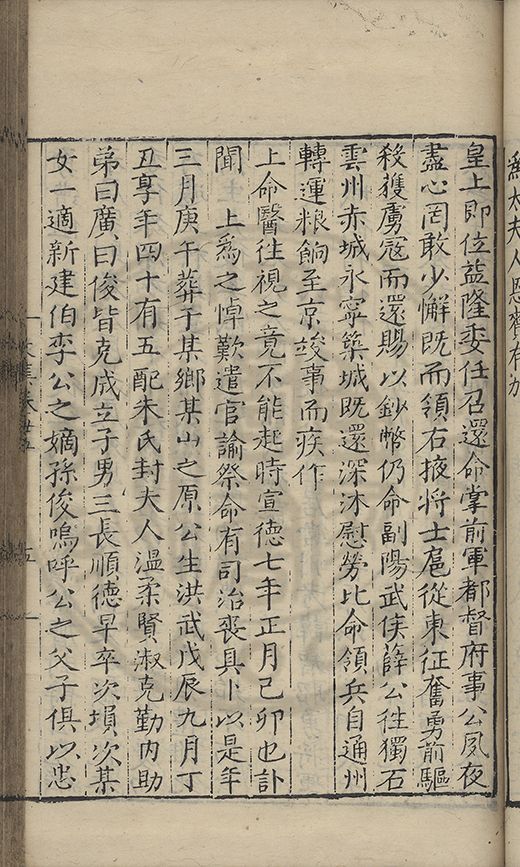 為太夫人恩賚有加
皇上即位益隆委任召還命掌前軍都督府事公夙夜
盡心罔敢少懈既而領右掖將士扈從東征奮勇前驅
殺獲虜寇而還賜以鈔幣仍命副陽武侯薛公往獨石
雲州赤城永寧築城既還深沐慰勞比命領兵自通州
轉運粮餉至京竣事而疾作
上命醫往視之竟不能起時宣德七年正月己卯也訃
聞　上為之悼歎遣官諭祭命有司治喪具卜以是年
三月庚午葬于某鄉某山之原公生洪武戊辰九月丁
丑享年四十有五配朱氏封夫人溫柔賢淑克勤內助
弟曰廣曰俊皆克成立子男三長順德早卒次塤次某
女一適新建伯李公之嫡孫俊嗚呼公之父子俱以忠
文集卷廿五
五